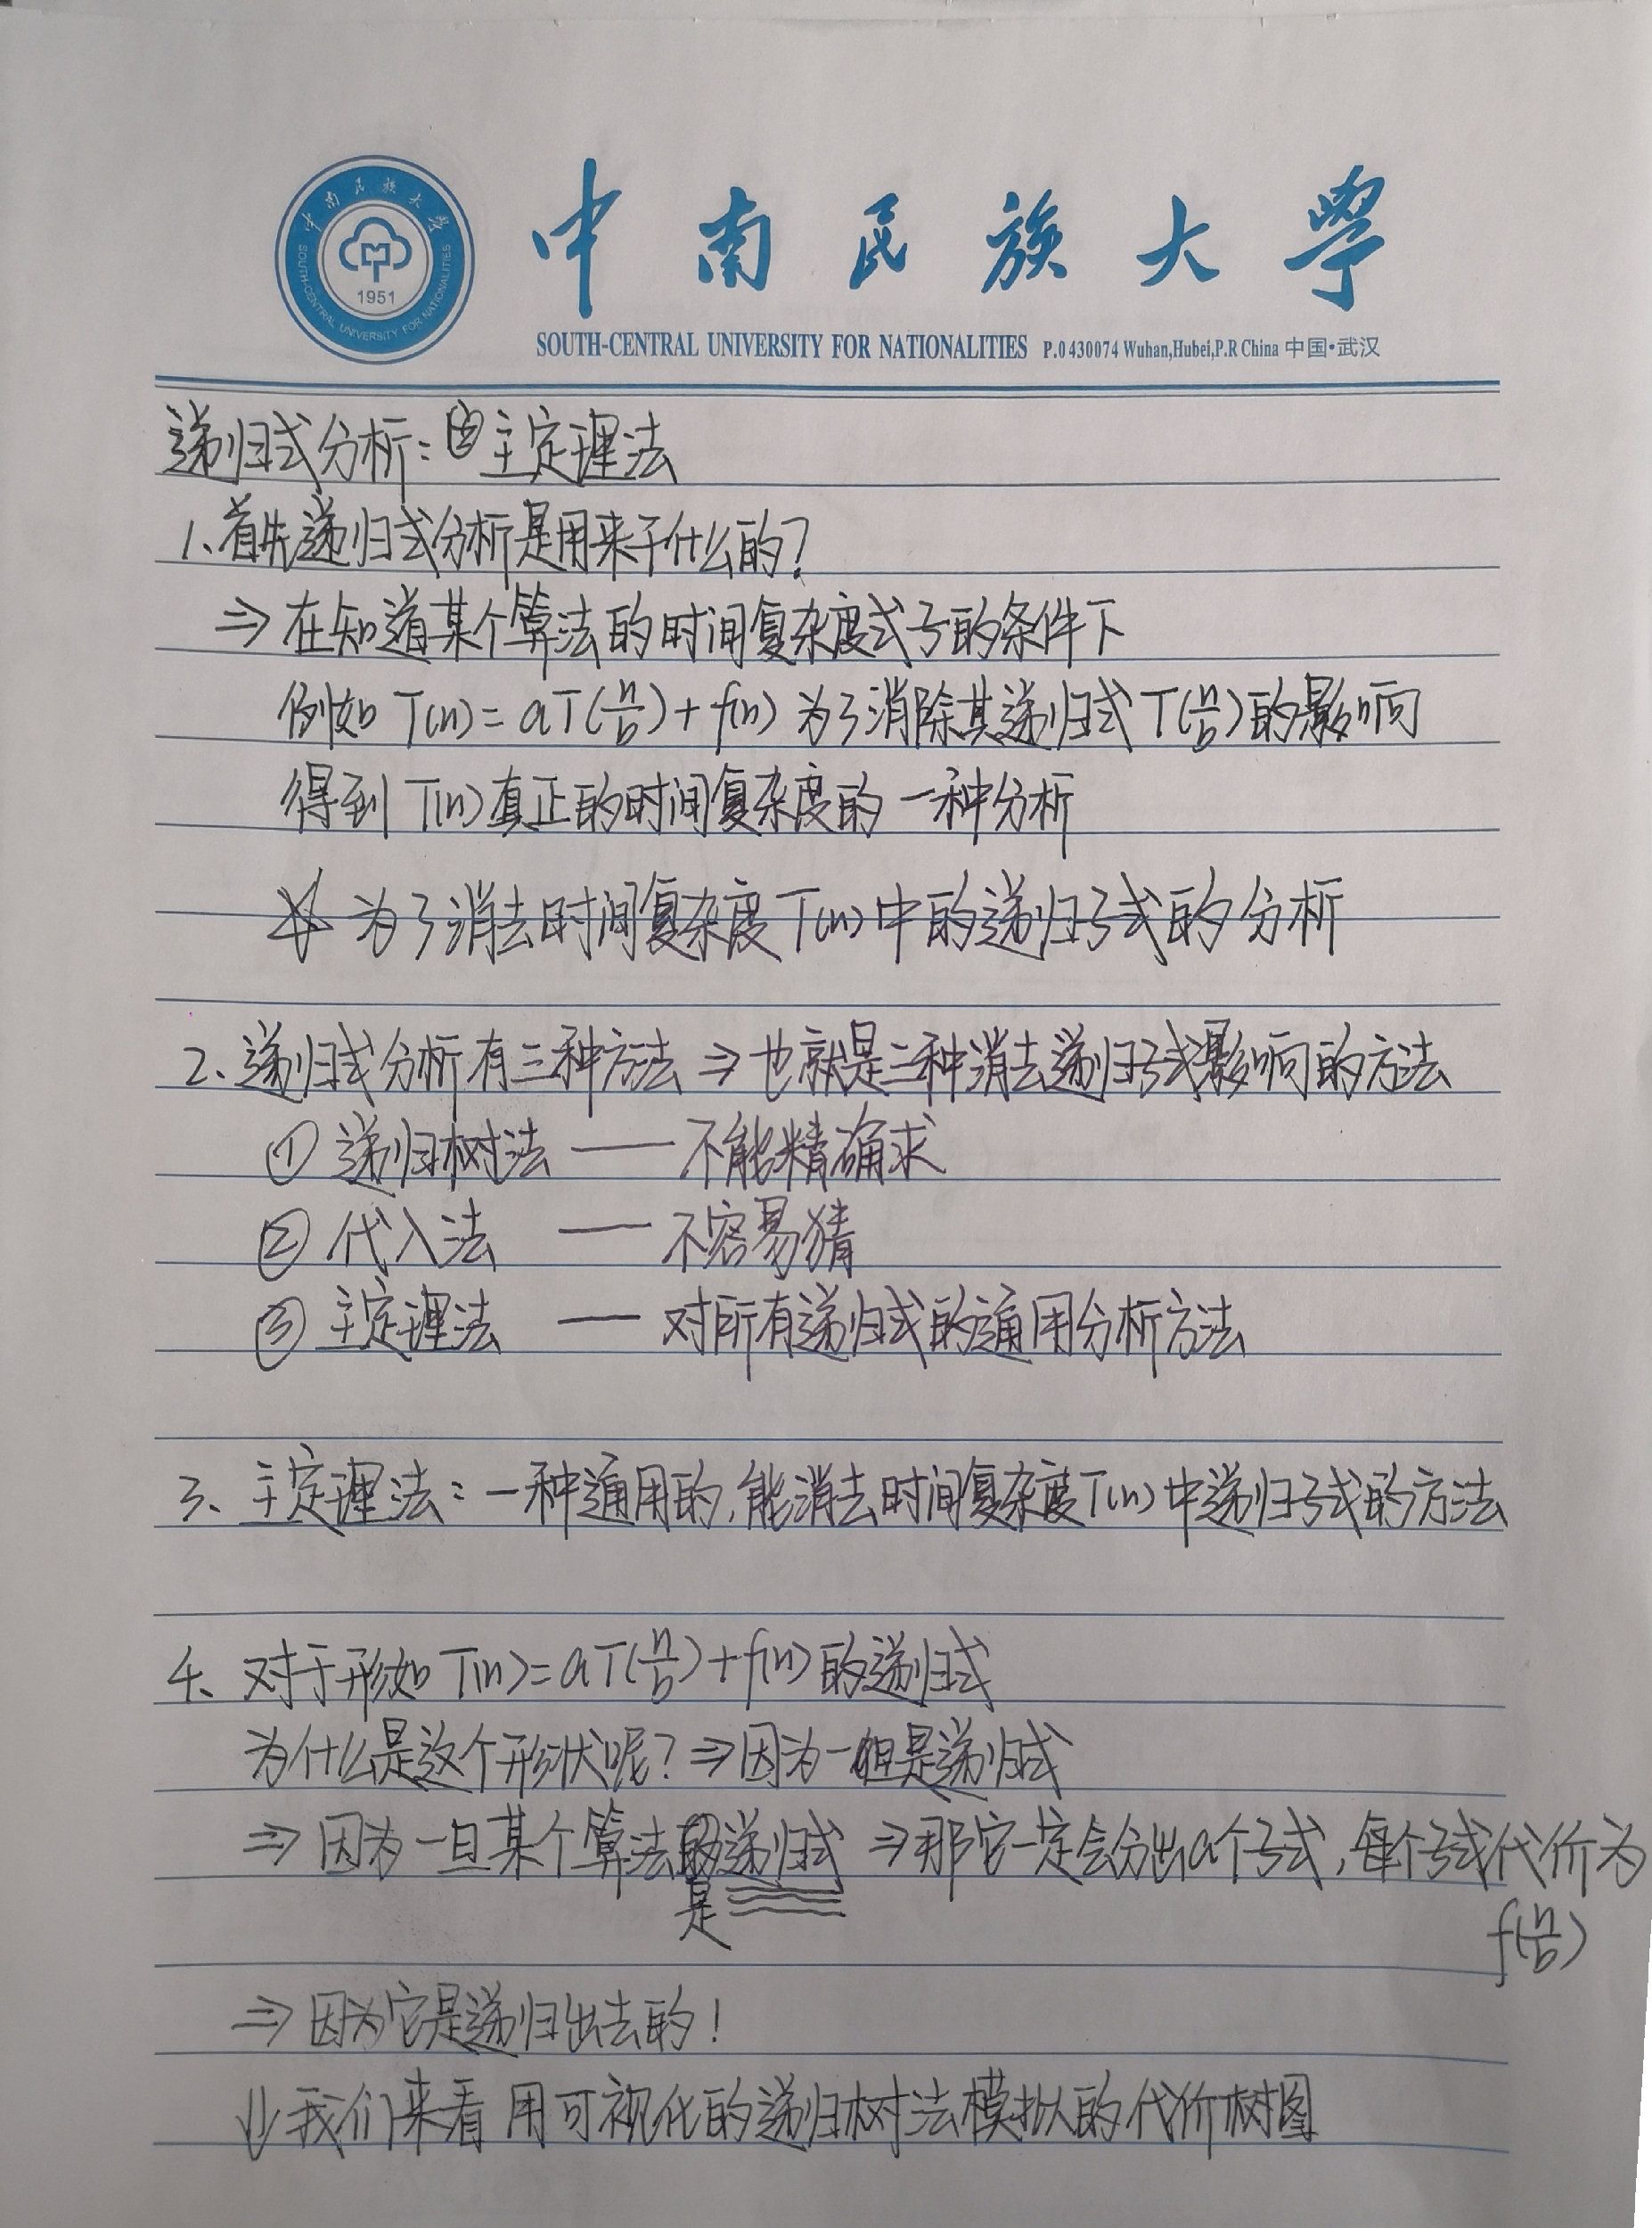 中南民族大學
SOUTH-CENTRAL UNIVERSITY FOR NATIONALITIES
1951
中南民族大學
SOUTH-CENTRAL UNIVERSITY FOR NATIONALITIES P.O430074 Wuhan,Hubei,P.R China 中国·武汉
递归式分析：主定理法
1、首先递归式分析是用来干什么的？
⇒ 在知道某个算法的时间复杂度式子的条件下
例如 T(n)=aT(n/b)+f(n) 为了消除其递归式T(n/b)的影响
得到T(n)真正的时间复杂度的一种分析
为了消去时间复杂度T(n)中的递归子式的分析
2、递归式分析有三种方法 ⇒ 也就是三种消去递归子式影响的方法
① 递归树法 —— 不能精确求
② 代入法 —— 不容易猜
③ 主定理法 —— 对所有递归式的通用分析方法
3、主定理法：一种通用的,能消去时间复杂度T(n)中递归子式的方法
4、对于形如 T(n)=aT(n/b)+f(n)的递归式
为什么是这个形状呢？⇒因为一但是递归式
⇒ 因为一旦某个算法是递归式 ⇒那它一定会分出a个子式，每个子式代价为
f(n/b)
⇒ 因为它是递归出去的！
⇓ 我们来看 用可视化的递归树法模拟的代价树图